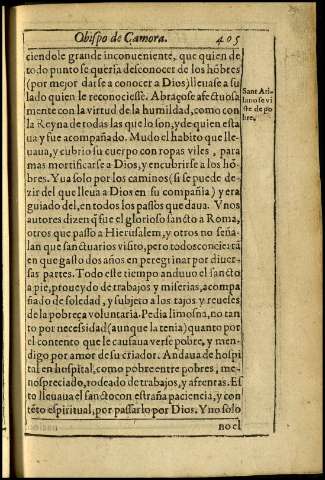 Obispo de Camora. 405
ciendole grande inconueniente, que quien de
todo punto se queria desconocer de los hõbres
(por mejor darse a conocer a Dios) lleuase a su
lado quien le reconociesse. Abraçose afectuosa
mente con la virtud de la humildad, como con
la Reyna de todas las que lo son, y de quien esta
ua y fue acompañado. Mudo el habito que lle-
uaua, y cubrio su cuerpo con ropas viles, para
mas mortificarse a Dios, y encubrirse a los hõ-
bres. Yua solo por los caminos (si se puede de-
zir del que lleua a Dios en su compañia) y era
guiado del, en todos los passos que daua. Vnos
autores dizen q̃ fue el glorioso sancto a Roma,
otros que passo a Hierusalem, y otros no seña-
lan que sanctuarios visito, pero todos concierta
en que gasto dos años en peregrinar por diuer-
sas partes. Todo este tiempo anduuo el sancto
a pie, proueydo de trabajos y miserias, acompa
ñado de soledad, y subjeto a los tajos y reueses
de la pobreça voluntaria. Pedia limosna, no tan
to por necessidad (aunque la tenia) quanto por
el contento que le causaua verse pobre, y men-
digo por amor de su criador. Andaua de hospi
tal en hospital, como pobre entre pobres, me-
nospreciado, rodeado de trabajos, y afrentas. Es
to lleuaua el sancto con estraña paciencia, y con
tẽto espiritual, por passarlo por Dios. Y no solo
no el
Sant Ati-
lano se vi
ste de po
bre.